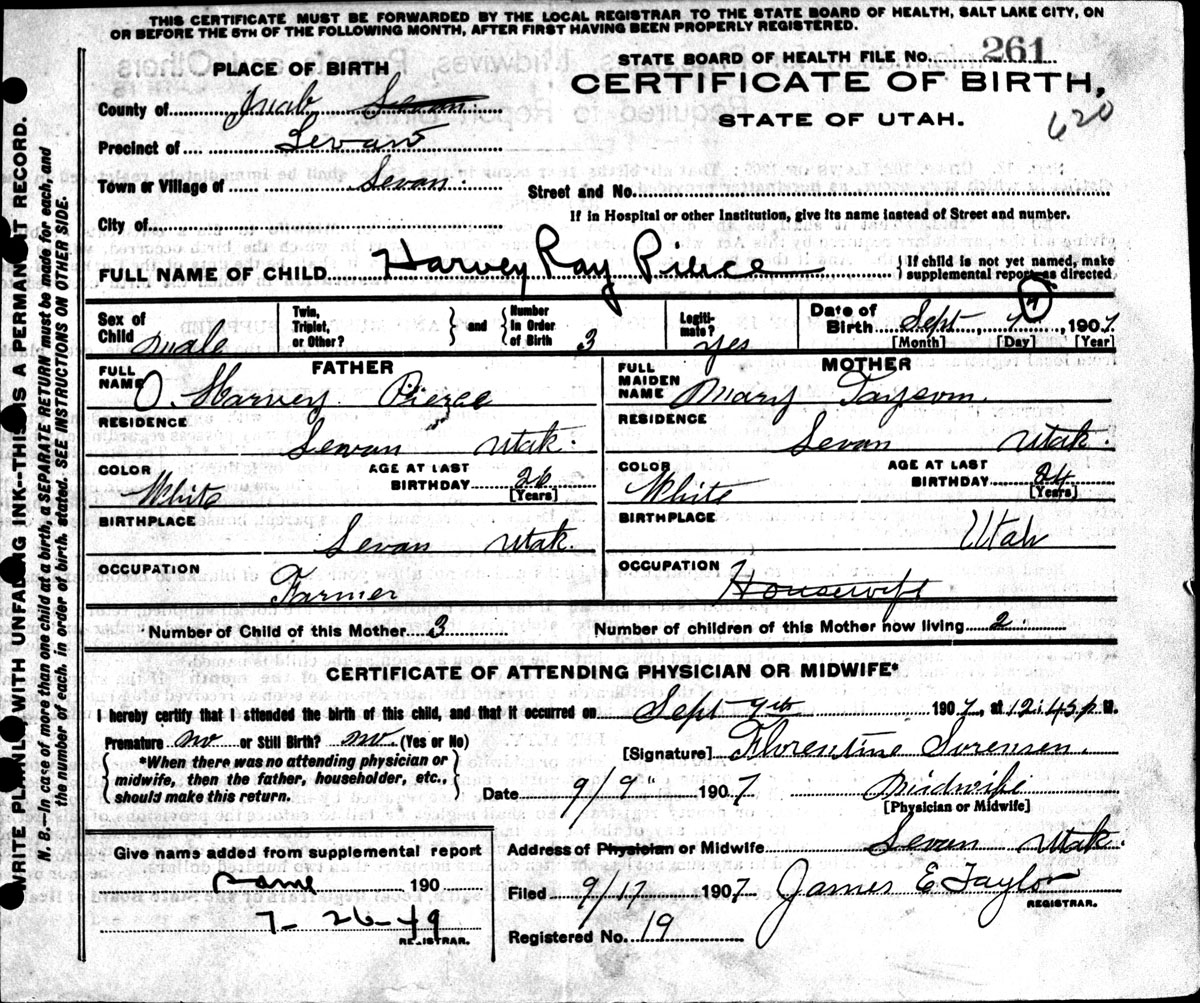 THIS CERTIFICATE MUST BE FORWARDED BY THE LOCAL REGISTRAR TO THE STATE BOARD OF HEALTH, SALT LAKE CITY, ON
OR BEFORE THE 5TH OF THE FOLLOWING MONTH, AFTER FIRST HAVING BEEN PROPERLY REGISTERED.
STATE BOARD OF HEALTH FILE NO. 261
PLACE OF BIRTH
CERTIFICATE OF BIRTH,
STATE OF UTAH.
620
County of Juab
Precinct of Levan
Town or Village of Levan.
Street and No.
City of
If in Hospital or other Institution, give its name instead of Street and number.
FULL NAME OF CHILD Harvey Ray Pierce
If child is not yet named, make supplemental report as directed
Sex of Child Male
Twin, Triplet, or Other?
and
Number in Order of Birth 3
Legitimate? yes
Date of Birth Sept 7 7 1907
[Month] [Day] [Year]
FATHER
FULL NAME O. Harvey Pierce
RESIDENCE Levan Utah.
COLOR White
AGE AT LAST BIRTHDAY 26
[Years]
BIRTHPLACE Levan Utah.
OCCUPATION Farmer
MOTHER
FULL MAIDEN NAME Mary Taysom.
RESIDENCE Levan Utah.
COLOR White
AGE AT LAST BIRTHDAY 24
[Years]
BIRTHPLACE Utah
OCCUPATION Housewife
Number of Child of this Mother 3
Number of children of this Mother now living 2.
CERTIFICATE OF ATTENDING PHYSICIAN OR MIDWIFE*
I hereby certify that I attended the birth of this child, and that it occurred on Sept 7th 1907, at 12:45 p. M.
Premature no or Still Birth? no. (Yes or No)
[Signature] Florentine Sorensen.
*When there was no attending physician or
midwife, then the father, householder, etc.,
should make this return.
Date 9/9" 1907
Midwife
[Physician or Midwife]
Address of Physician or Midwife Levan Utah.
Give name added from supplemental report
name 190
7-26-49
REGISTRAR.
Filed 9/17 1907 James E Taylor
REGISTRAR.
Registered No. 19
WRITE PLAINLY, WITH UNFADING INK--THIS IS A PERMANENT RECORD.
N. B.--In case of more than one child at a birth, a SEPARATE RETURN must be made for each, and
the number of each, in order of birth, stated. SEE INSTRUCTIONS ON OTHER SIDE.